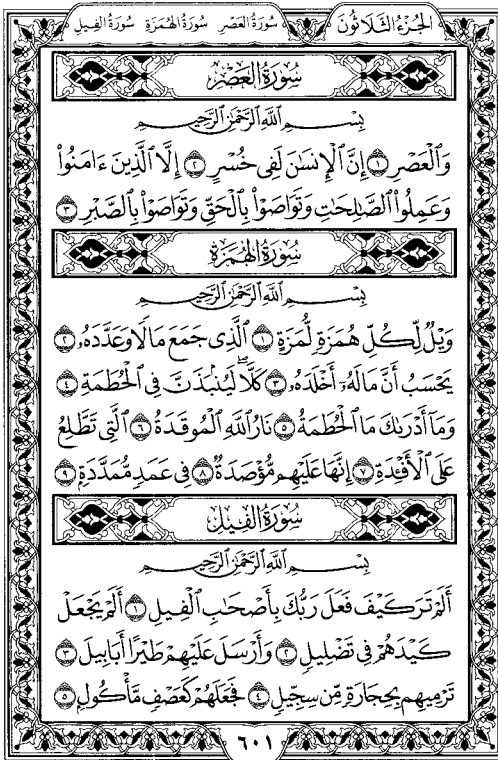 الجزء الثلاثون سورة العصر سورة الهمزة سورة الفيل
سورة العصر
بِسْمِ ٱللَّهِ ٱلرَّحْمَٰنِ ٱلرَّحِيمِ
وَٱلْعَصْرِ ١ إِنَّ ٱلْإِنسَٰنَ لَفِى خُسْرٍ ٢ إِلَّا ٱلَّذِينَ ءَامَنُوا۟
وَعَمِلُوا۟ ٱلصَّٰلِحَٰتِ وَتَوَاصَوْا۟ بِٱلْحَقِّ وَتَوَاصَوْا۟ بِٱلصَّبْرِ ٣
سورة الهمزة
بِسْمِ ٱللَّهِ ٱلرَّحْمَٰنِ ٱلرَّحِيمِ
وَيْلٌ لِّكُلِّ هُمَزَةٍ لُّمَزَةٍ ١ ٱلَّذِى جَمَعَ مَالًا وَعَدَّدَهُۥ ٢
يَحْسَبُ أَنَّ مَالَهُۥٓ أَخْلَدَهُۥ ٣ كَلَّا ۖ لَيُنۢبَذَنَّ فِى ٱلْحُطَمَةِ ٤
وَمَآ أَدْرَىٰكَ مَا ٱلْحُطَمَةُ ٥ نَارُ ٱللَّهِ ٱلْمُوقَدَةُ ٦ ٱلَّتِى تَطَّلِعُ
عَلَى ٱلْأَفْـِٔدَةِ ٧ إِنَّهَا عَلَيْهِم مُّؤْصَدَةٌ ٨ فِى عَمَدٍ مُّمَدَّدَةٍۭ ٩
سورة الفيل
بِسْمِ ٱللَّهِ ٱلرَّحْمَٰنِ ٱلرَّحِيمِ
أَلَمْ تَرَ كَيْفَ فَعَلَ رَبُّكَ بِأَصْحَٰبِ ٱلْفِيلِ ١ أَلَمْ يَجْعَلْ
كَيْدَهُمْ فِى تَضْلِيلٍ ٢ وَأَرْسَلَ عَلَيْهِمْ طَيْرًا أَبَابِيلَ ٣
تَرْمِيهِم بِحِجَارَةٍ مِّن سِجِّيلٍ ٤ فَجَعَلَهُمْ كَعَصْفٍ مَّأْكُولٍۭ ٥
٦٠١